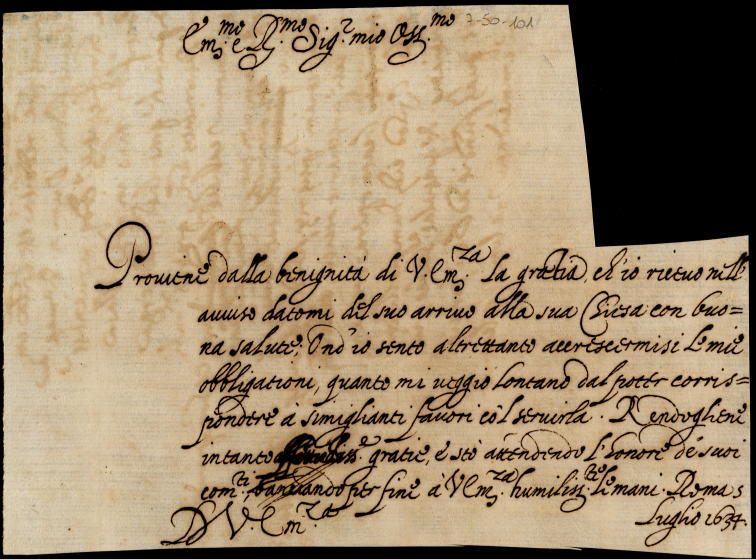 7-50-101
Em.mo e R.mo Sig.r mio Oss.mo
Proviene dalla benignità di V. Em.za la gratia, ch'io ricevo nell'
avviso datomi del suo arrivo alla sua Chiesa con buo=
na salute; Ond'io sento altrettanto accrescermisi le mie
obbligationi, quanto mi veggio lontano dal poter corris=
pondere à simiglianti favori col servirla. Rendogliene
intanto gratie, e stò attendendo l'honore de' suoi
com.ti, baciando per fine à V. Em.za humiliss.te le mani. Roma 5
Luglio 1634.
D V. Em.za